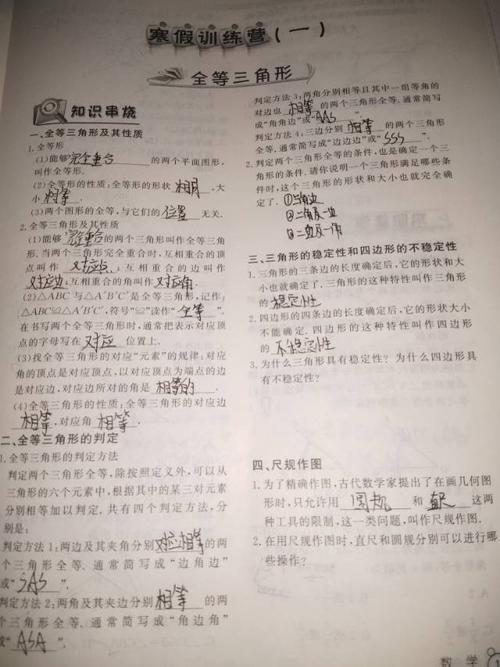 寒假训练营(一)
全等三角形
知识串烧
一、全等三角形及其性质
1.全等形
(1)能够完全重合的两个平面图形,
叫作全等形.
(2)全等形的性质:全等形的形状相同,大
小相等.
(3)两个图形的全等,与它们的位置无关.
2.全等三角形及其性质
(1)能够完全重合的两个三角形叫作全等三角
形.当两个三角形完全重合时,互相重合的顶
点叫作对应点,互相重合的边叫作
对应边,互相重合的角叫作对应角.
(2)△ABC与△A′B′C′是全等三角形,记作:
△ABC≌△A′B′C′,符号“≌”读作“全等”.
在书写两个全等三角形时,通常把表示对应顶
点的字母写在对应位置上.
(3)找全等三角形的对应“元素”的规律:对应
角的顶点是对应顶点,以对应顶点为端点的边
是对应边,对应边所对的角是相等的.
(4)全等三角形的性质:全等三角形的对应边
相等,对应角相等.
二、全等三角形的判定
1.全等三角形的判定方法
判定两个三角形全等,除按照定义外,可以从
三角形的六个元素中,根据其中的某三对元素
分别相等加以判定,共有四个判定方法,分
别是:
判定方法1:两边及其夹角分别对应相等的两
个三角形全等.通常简写成“边角边”
或“SAS”.
判定方法2:两角及其夹边分别相等的两
个三角形全等.通常简写成“角边角”
或“ASA”.
判定方法3:两角分别相等且其中一组等角的
对边也相等的两个三角形全等.通常简写
成“角角边”或“AAS”.
判定方法4:三边分别相等的两个三角形
全等,通常简写成“边边边”或“SSS”.
2.判定两个三角形全等的条件,也是确定一个三
角形的条件.请你说明一个三角形满足哪些条
件时,这个三角形的形状和大小也就完全确
定了.①三角边
②二角及一边
③二边及一角
三、三角形的稳定性和四边形的不稳定性
1.三角形的三条边的长度确定后,它的形状和大
小也就确定了.三角形的这种特性叫作三角形
的稳定性
2.四边形的四条边的长度确定后,它的形状大小
不能确定.四边形的这种特性叫作四边形
的不稳定性
3.为什么三角形具有稳定性?为什么四边形具
有不稳定性?
四、尺规作图
1.为了精确作图,古代数学家提出了在画几何图
形时,只允许用圆规和直尺这两
种工具的限制,这一类问题,叫作尺规作图.
2.在用尺规作图时,直尺和圆规分别可以进行哪
些操作?
数学